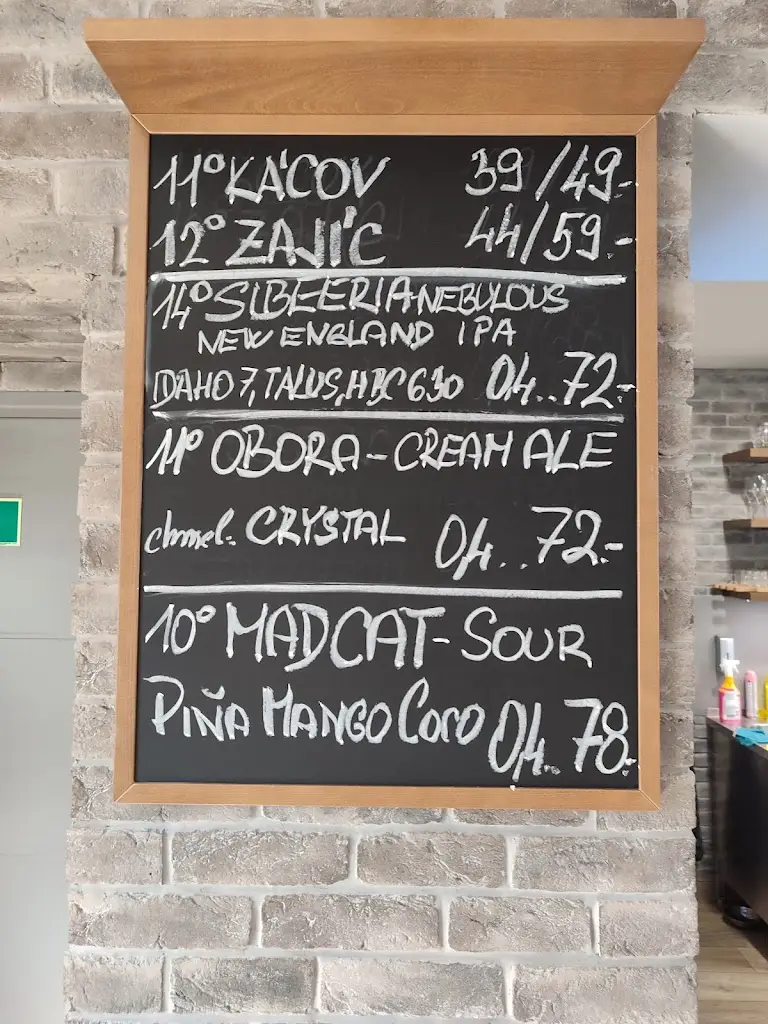 11° KÁCOV 39/49.-
12° ZAJÍC 44/59-
14° SIBEERIA NEBULOUS
NEW ENGLAND IPA
IDAHO 7, TALUS, HBC 630 04..72.-
11° OBORA - CREAM ALE
chmel: CRYSTAL 04..72.-
10° MADCAT - SOUR
PIÑA MANGO COCO 04..78.-